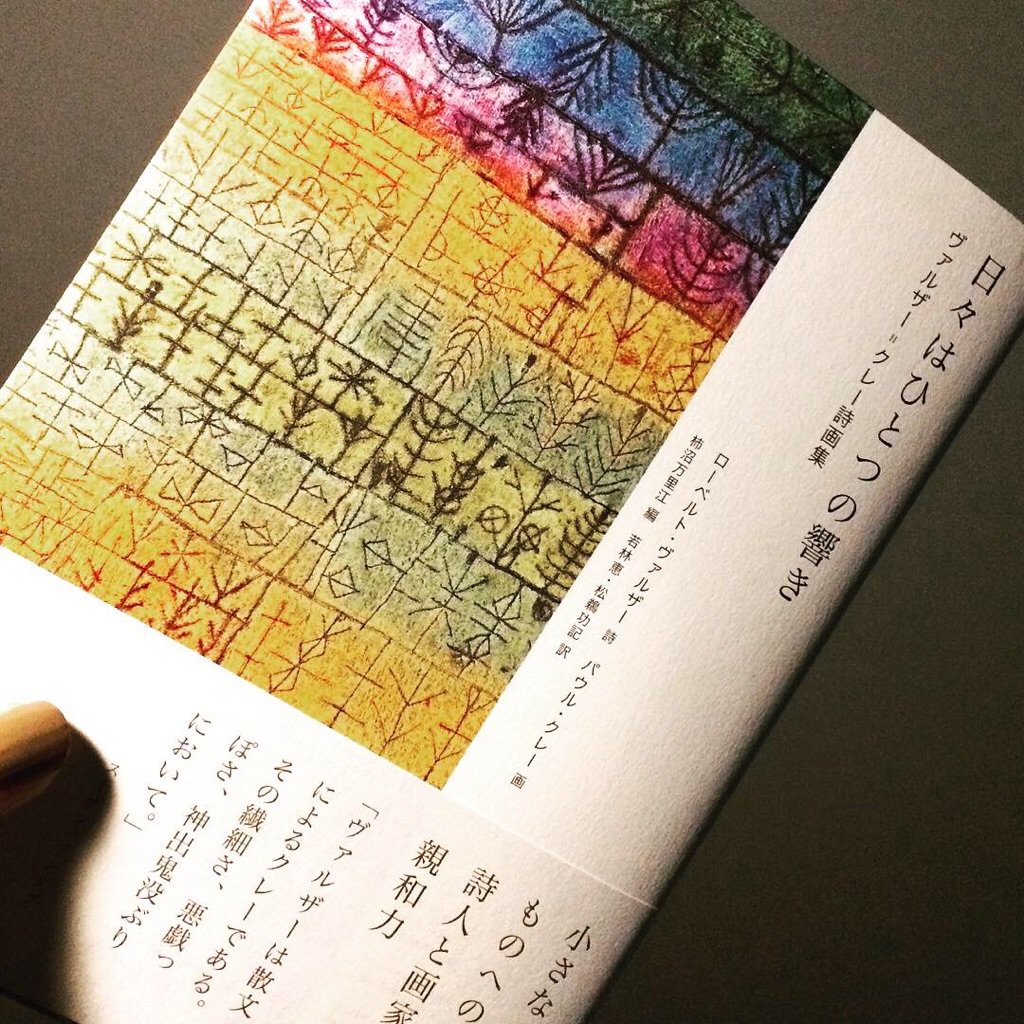 日々はひとつの響き
ヴァルザー=クレー詩画集
ローベルト・ヴァルザー 詩 パウル・クレー 画
柿沼万里江 編 若林恵・松鵜功記 訳
小さな
ものへの
詩人と画家
親和力
「ヴァルザーは散文
によるクレーである。
その繊細さ、悪戯っ
ぽさ、神出鬼没ぶり
において。」
ス